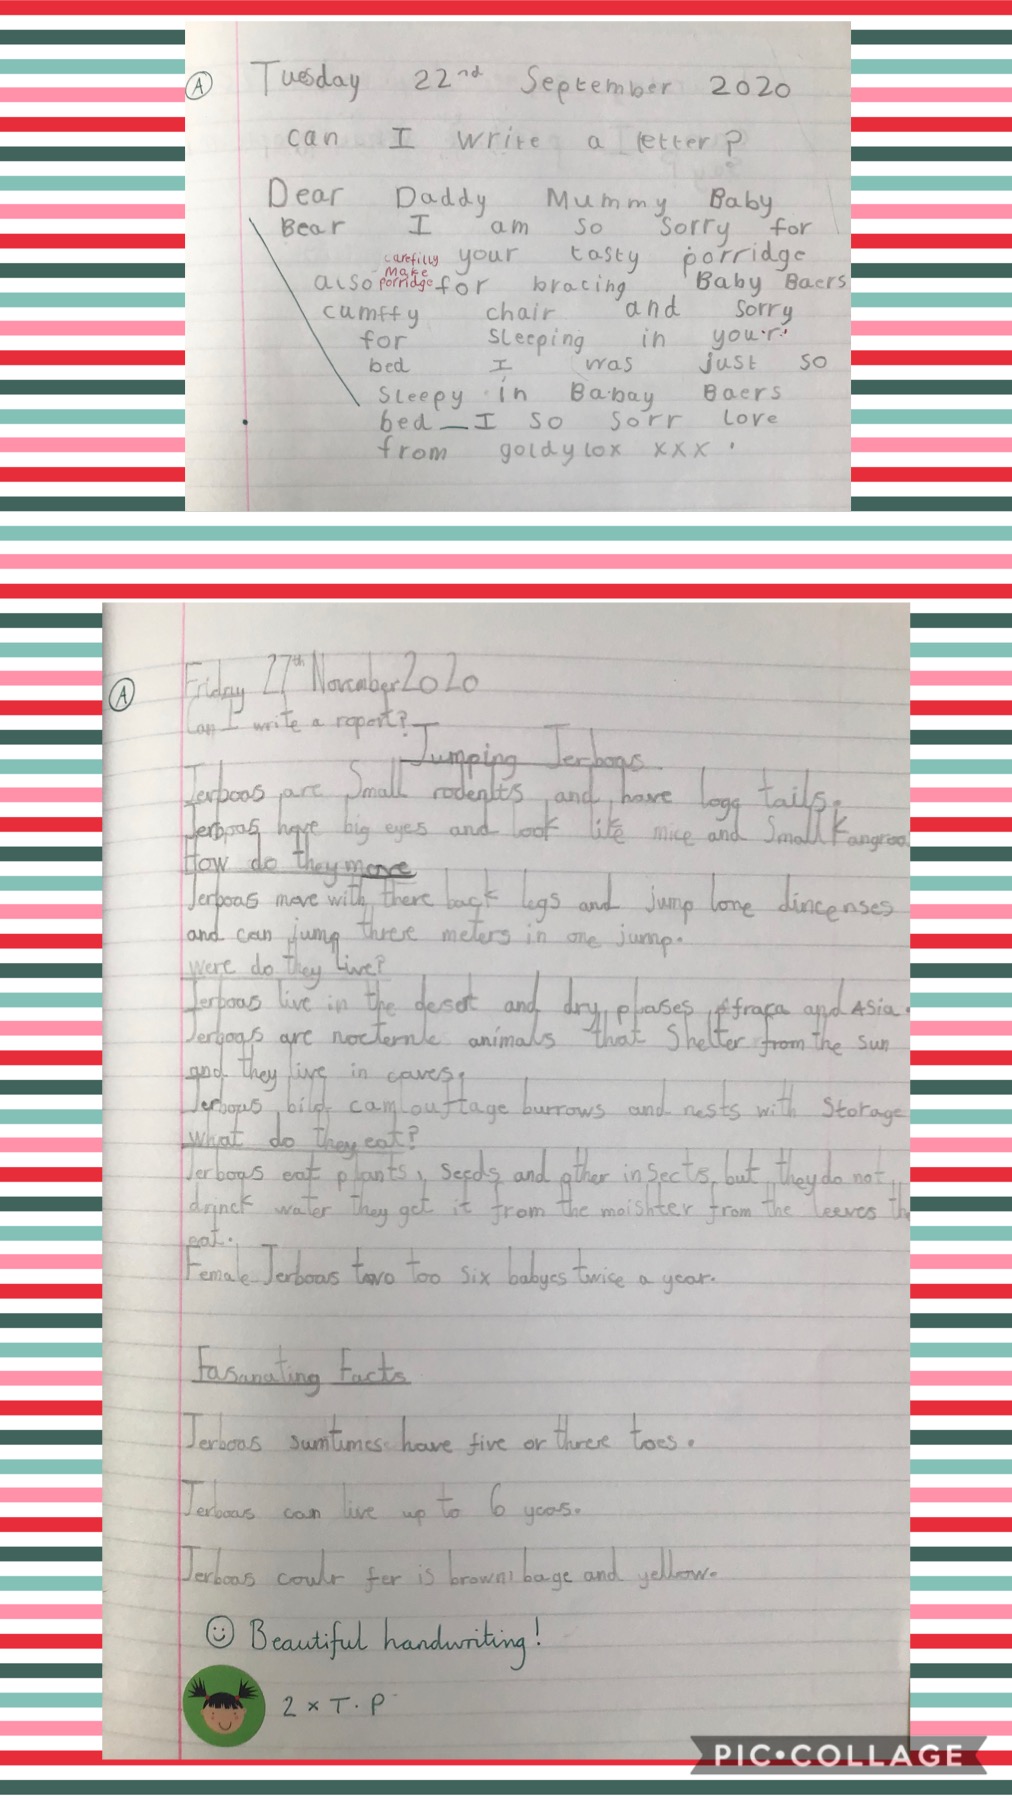 A
Tuesday 22nd September 2020
can I write a letter?
Dear Daddy Mummy Baby
Bear I am so sorry for
your tasty porridge
carefilly
make
porridge
also for bracing Baby Baers
cumffy chair and sorry
for sleeping in your
bed I was just so
sleepy in Babay Baers
bed _ I so sorr love
from goldylox xxx
A
Friday 27th November 2020
Can I write a report?
Jumping Jerboas
Jerboas are Small rodents and have logg tails.
Jerboas have big eyes and look like mice and Small Kangroo
How do they move
Jerboas move with there back legs and jump lone dincenses
and can jump threre meters in one jump.
were do they live?
Jerboas live in the desert and dry plases Afraca and Asia.
Jerboas are nocternle animals that Shelter from the sun
and they live in caves.
Jerboas bild camlouftage burrows and nests with Storage
what do they eat?
Jerboas eat plants, seeds and other insects, but they do not
drinck water they get it from the moishter from the leeves th
eat.
Female Jerboas towo too six babyes twice a year.
Fasanating Facts
Jerboas sumtimes have five or threre toes.
Jerboas can live up to 6 yeas.
Jerboas coulr fer is brown, bage and yellow.
Beautiful handwriting!
2 x T.P
PIC•COLLAGE